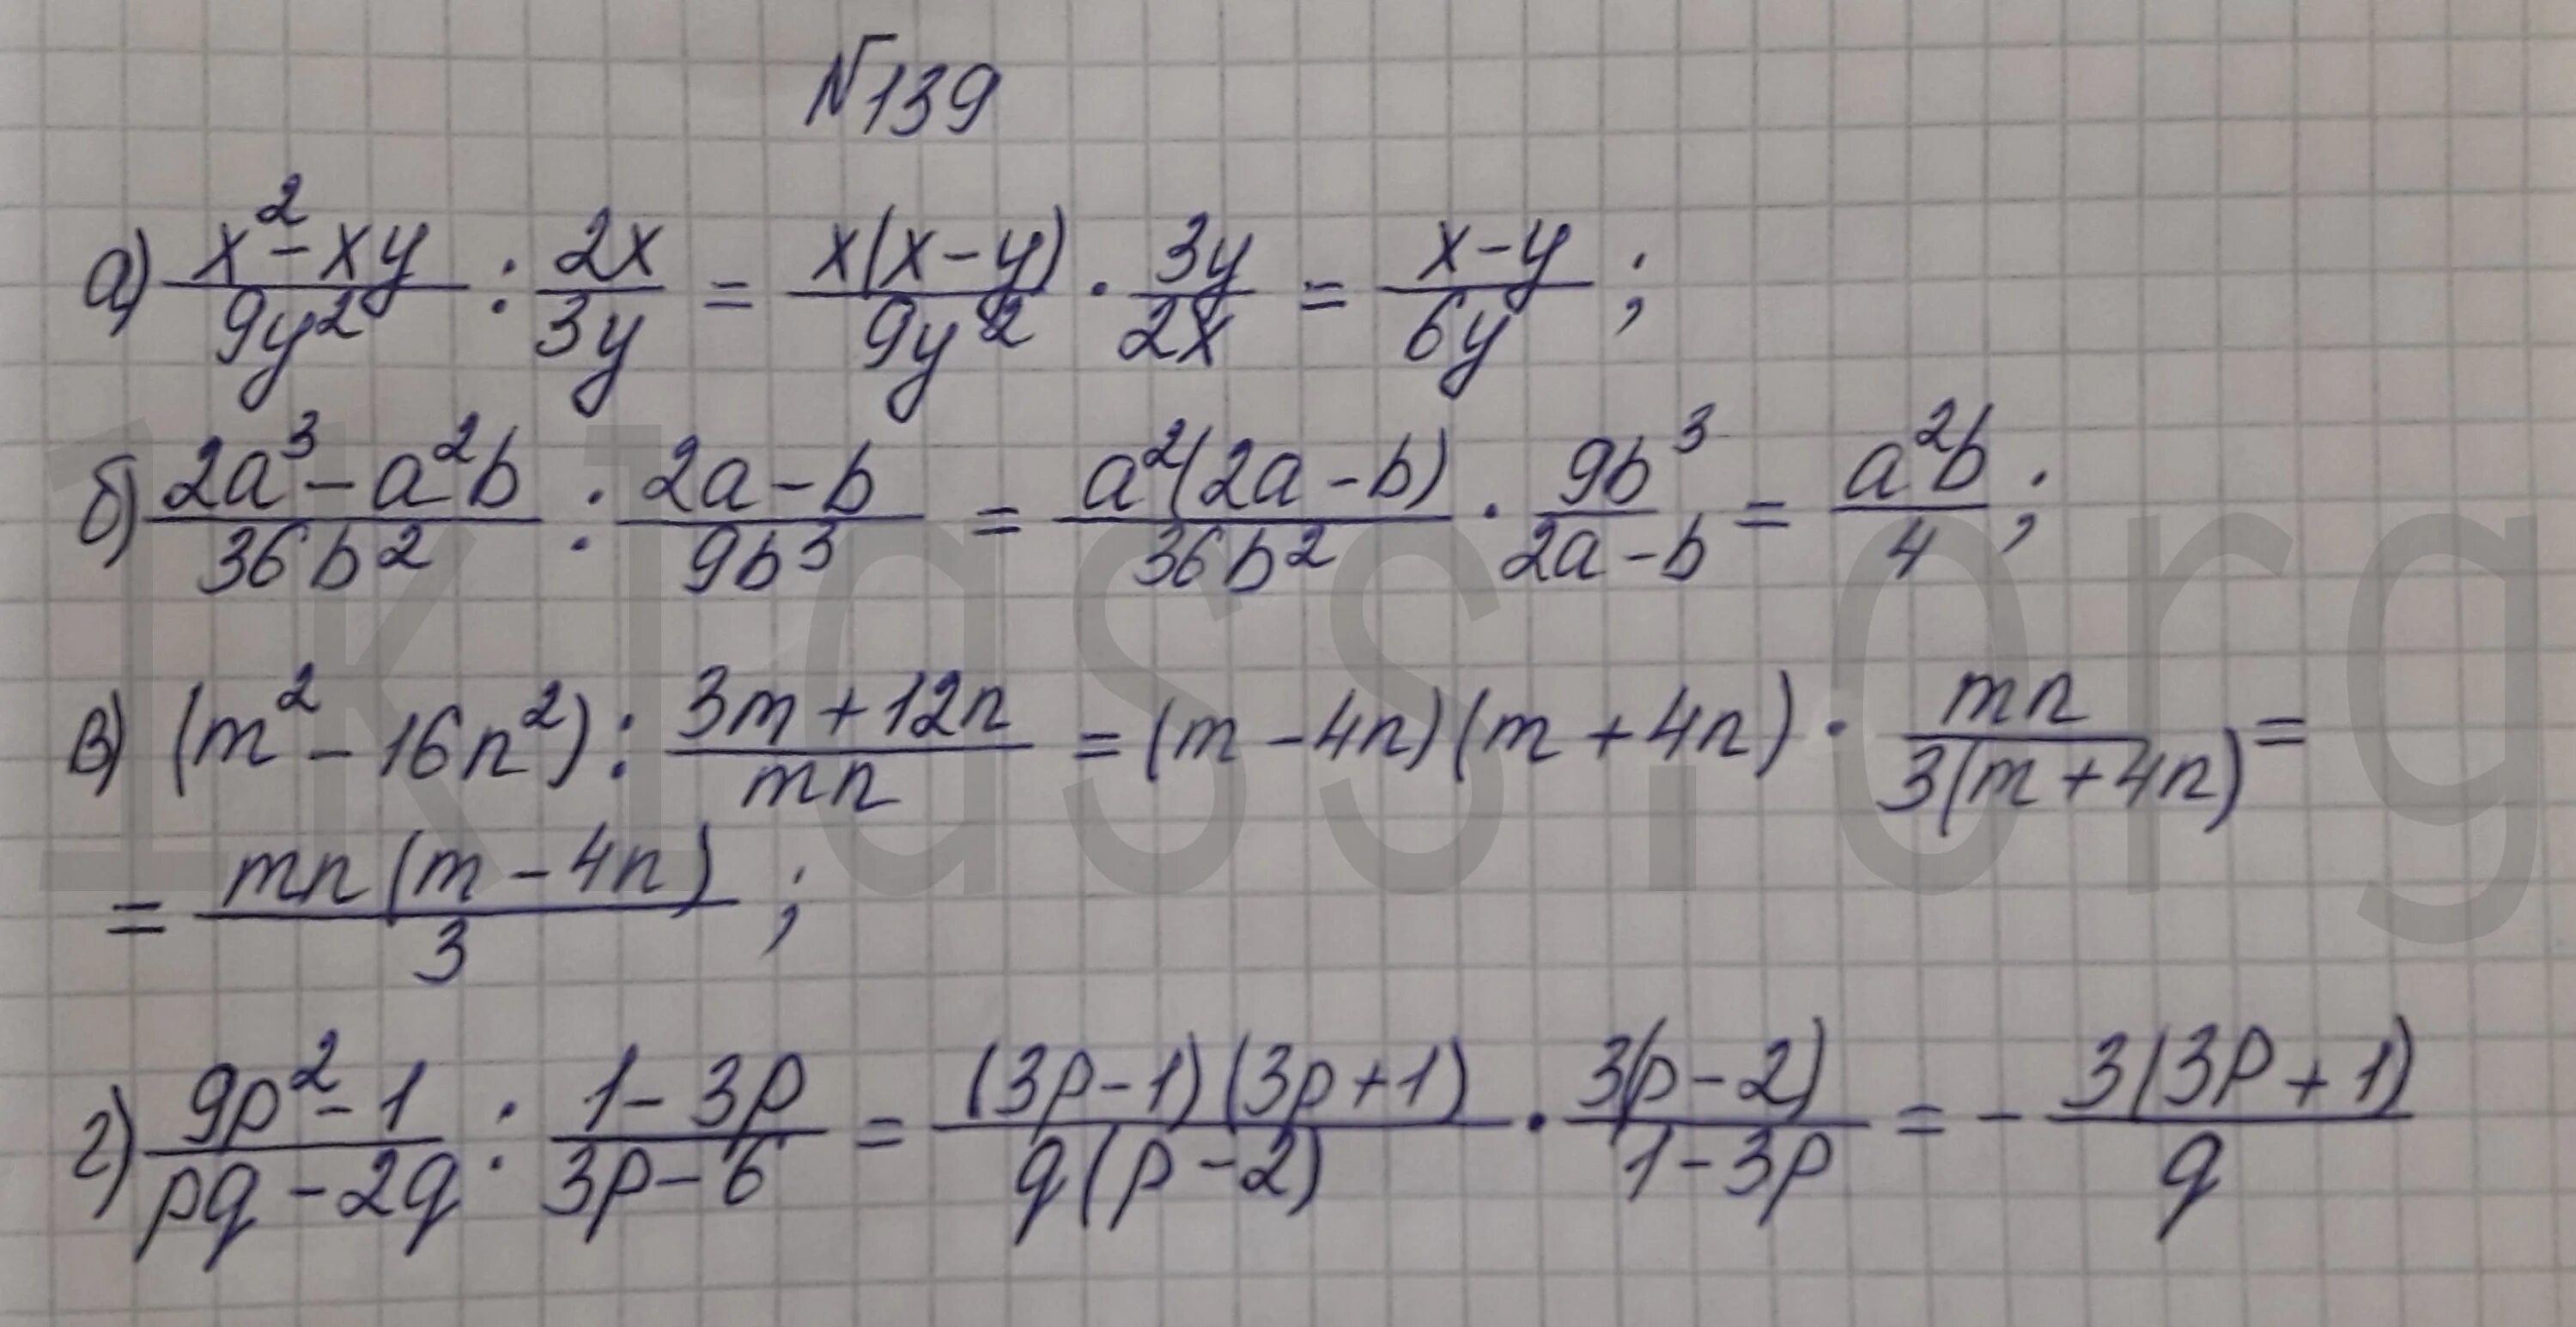 №139
а) \frac{x^2-xy}{9y^2} : \frac{2x}{3y} = \frac{x(x-y)}{9y^2} · \frac{3y}{2x} = \frac{x-y}{6y} ;
б) \frac{2a^3-a^2b}{36b^2} : \frac{2a-b}{9b^3} = \frac{a^2(2a-b)}{36b^2} · \frac{9b^3}{2a-b} = \frac{a^2b}{4} ;
в) (m^2-16n^2) : \frac{3m+12n}{mn} = (m-4n)(m+4n) · \frac{mn}{3(m+4n)} =
= \frac{mn(m-4n)}{3} ;
г) \frac{9p^2-1}{pq-2q} : \frac{1-3p}{3p-6} = \frac{(3p-1)(3p+1)}{q(p-2)} · \frac{3(p-2)}{1-3p} = - \frac{3(3p+1)}{q}
1klass.org